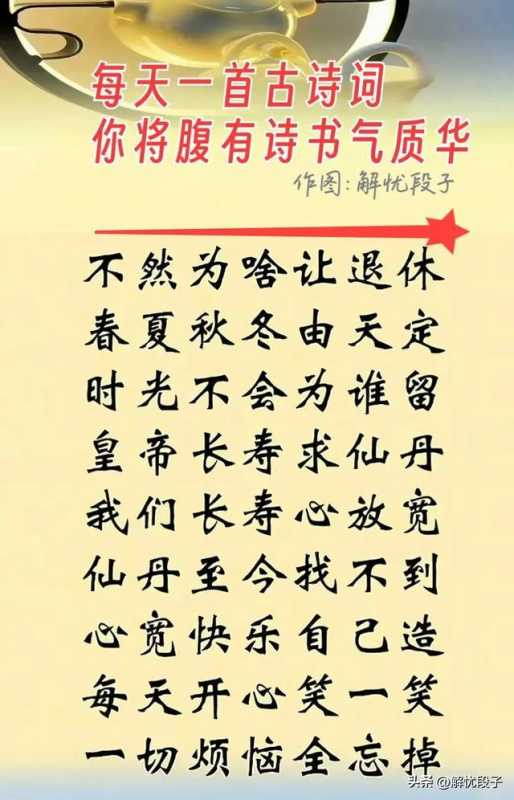 每天一首古诗词
你将腹有诗书气质华
作图:解忧段子
不然为啥让退休
春夏秋冬由天定
时光不会为谁留
皇帝长寿求仙丹
我们长寿心放宽
仙丹至今找不到
心宽快乐自己造
每天开心笑一笑
一切烦恼全忘掉
头条 @解忧段子